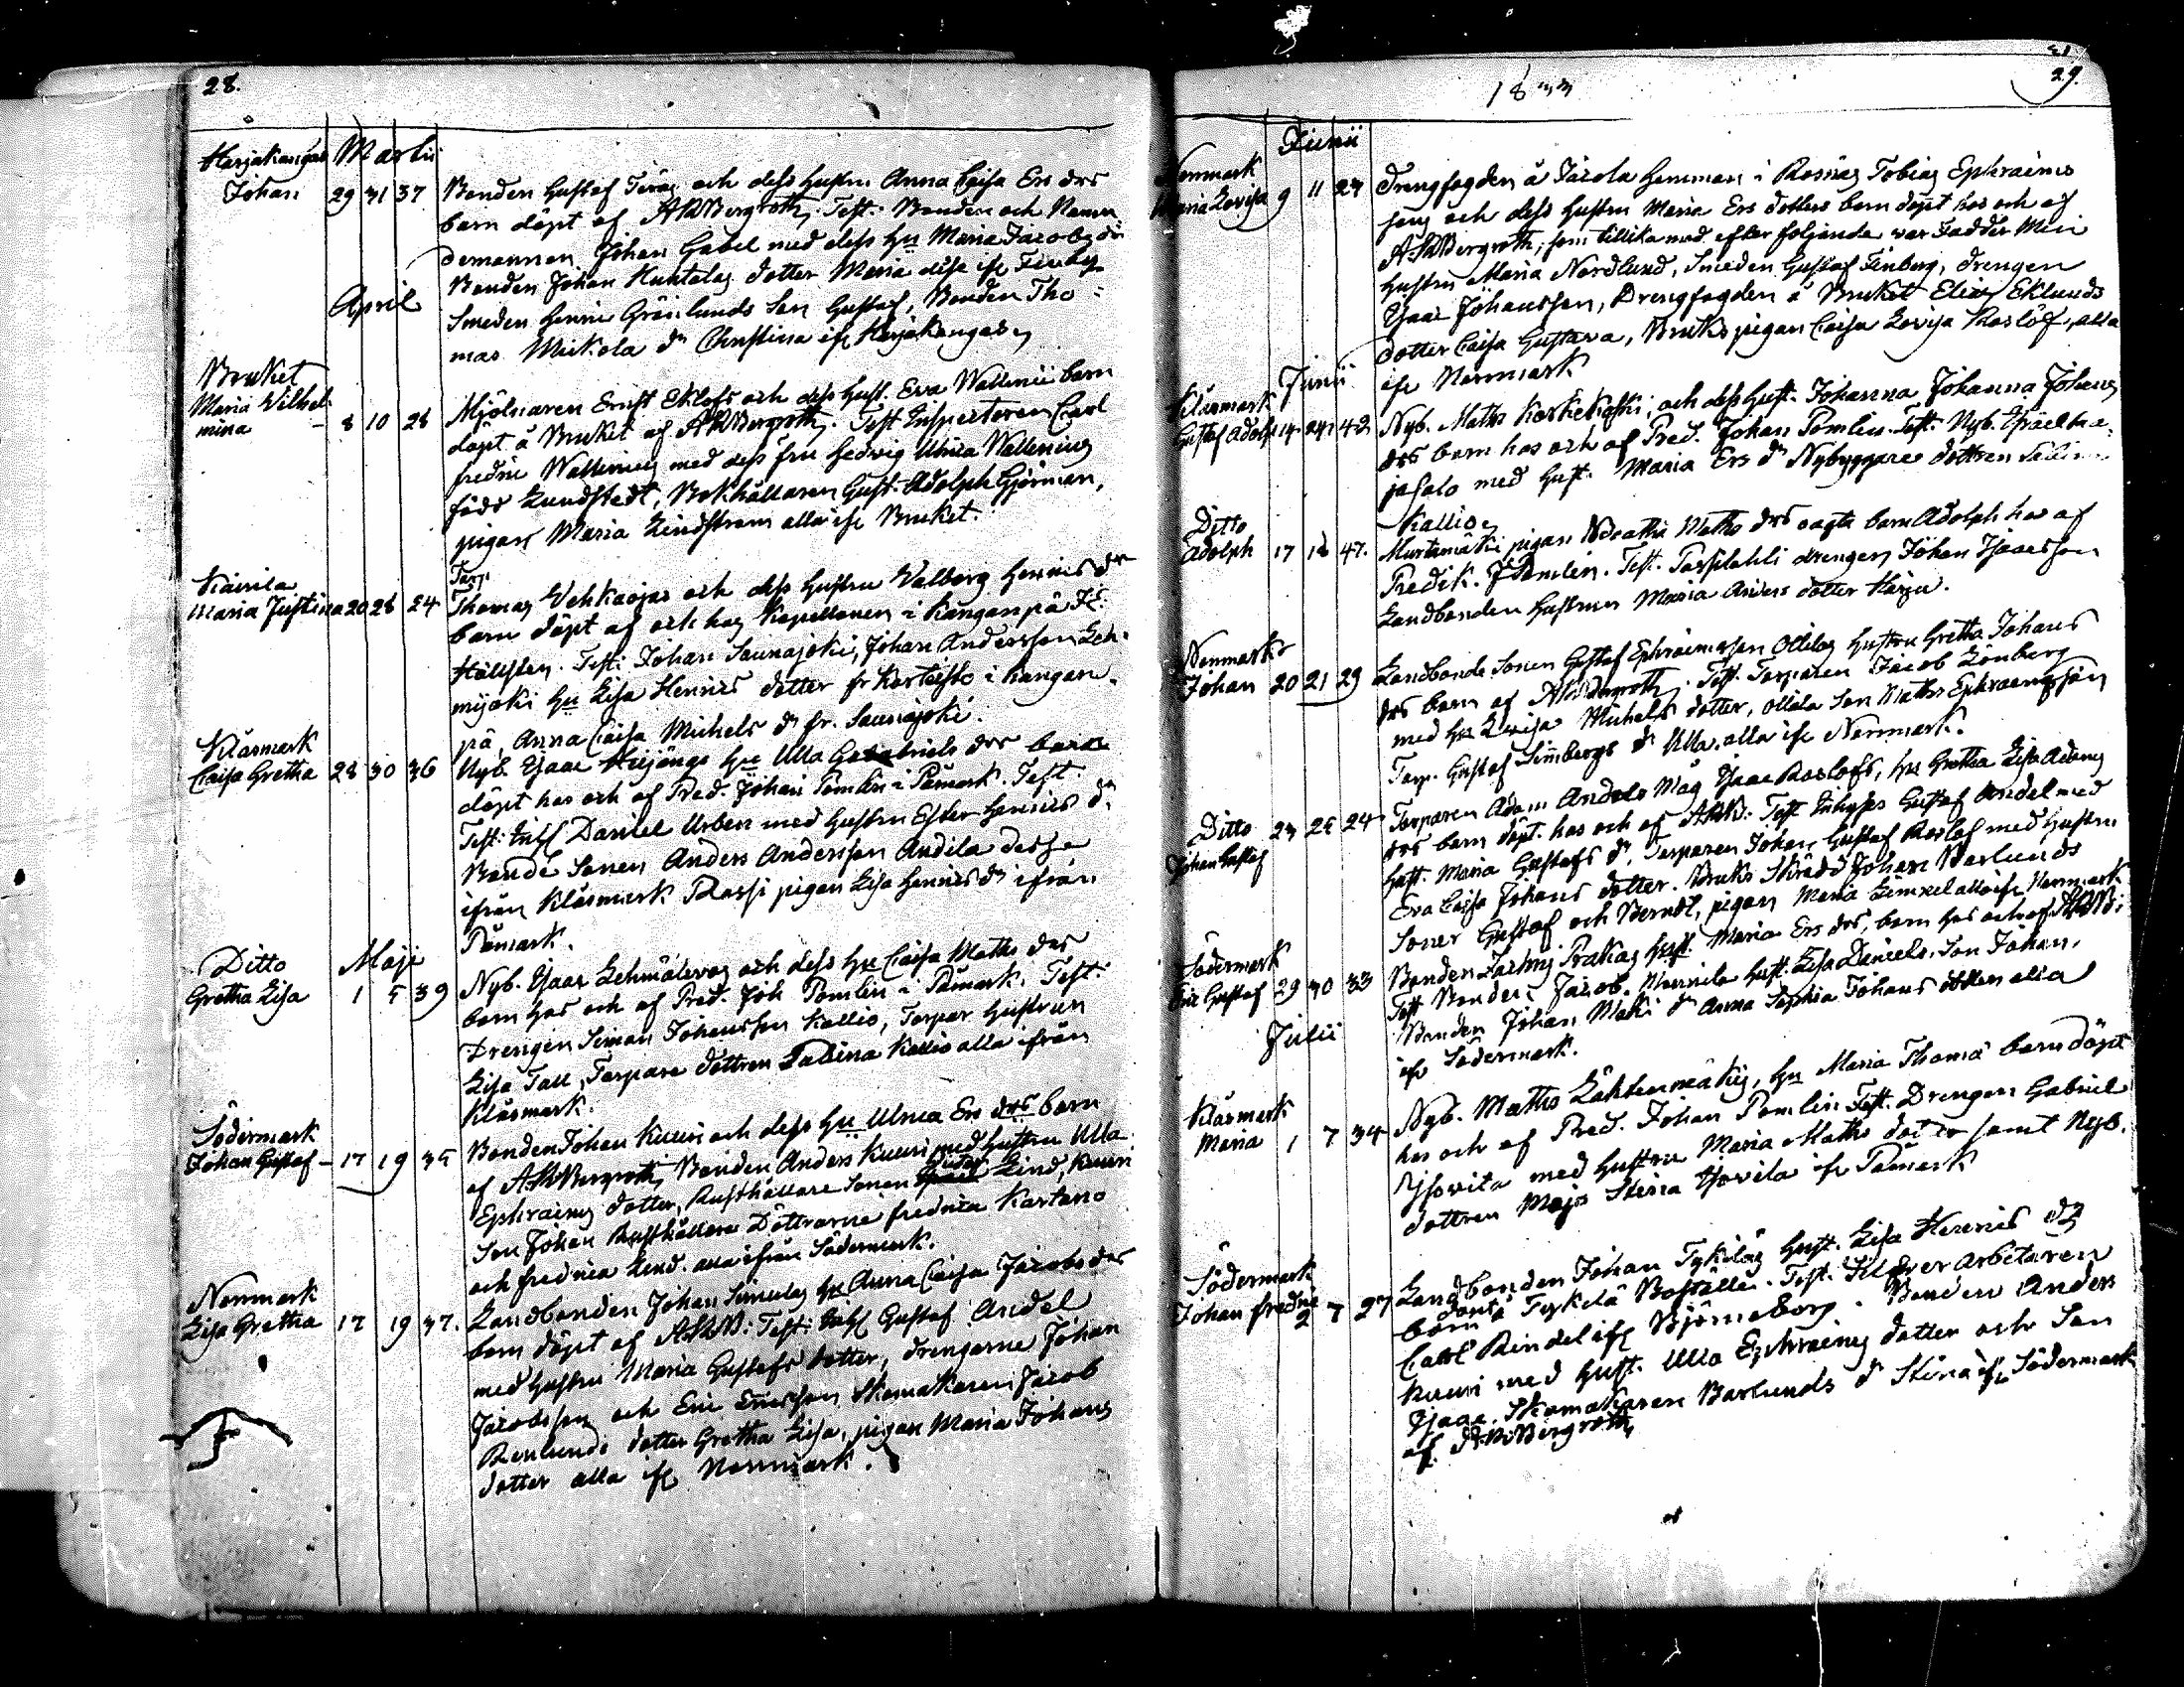 28.
Harjakangas Martii
Johan 29 31 37 Bonden Gustaf och dess hustru Anna Caisa Ers drs
barn döpt af AWBergroth. Test: Bonden och
demannen Johan Gabel med dess Hu Maria Jacobs dr
Bonden Johan Huhtalas dotter Maria
April
Smeden Henric Grönlunds Son Gustaf, Bonden Tho-
mas Mickola dr Christina ifr Harjakangas
Bruket
Maria Vilhel-
mina - 8 10 28
Mjölnaren Ernst Eklöfs och dess Hust. Eva Wallenii barn
döpt å Bruket af AWBergroth. Test Inspectoren Carl
fredric Wallenius med dess fru Hedvig Ulrica Wallenius
född Lundstedt, Bokhållaren Gust. Adolph Björman,
pigan Maria Lindström alla ifr Bruket.
Kairila
Maria Justina 20 28 24
Torp.
Thomas Vehkaojas och dess hustru Valborg Henrics dr
barn döpt af och hos Kapellanen i Kanganpä
Hällsten. Test: Johan Saunajoki, Johan Andersson Leh-
mijoki Hu Lisa Henrics dotter fr i Kangan-
pä, Anna Caisa Michels dr fr. Saunajoki.
Klåsmark
Caisa Gretha 28 30 36 Nyb. Isaac Hu Ulla Gabriels drs barn
döpt hos och af Pred. Johan Pomlin i Påmark. Test:
Test: Daniel Urben med Hustru Ester Henrics dr
Bonde Sonen Anders Andersson Andila desse
ifrån Klåsmark Rassi pigan Lisa Henrics dr ifrån
Påmark.
Ditto Maji
Gretha Lisa 1 5 39 Nyb. Isaac Lehmälevas och dess Hu Caisa Maths drs
barn hos och af Pred. Joh Pomlin i Påmark. Test:
Drengen Simon Johansson Kallio, Torpar Hustrun
Lisa Tall, Torpare dottren Sabina Kallio alla ifrån
Klåsmark.
Södermark
Johan Gustaf - 17 19 35 Bonden Johan Kuuri och dess Hu Ulrica Ers drs barn
af AWBergroth, Bonden Anders Kuuri med Hustru Ulla
Ephraims dotter, Rusthållare Sonen Lind, Kuuri
Son Johan Rusthållare Döttrarne fredrica Kartano
och fredrica Lind. alla ifrån Södermark.
Norrmark
Lisa Gretha 17 19 37. Landbonden Johan Hu Anna Caisa Jacobs drs
barn döpt af AWB: Test: Gustaf Andel
med Hustru Maria Gustafs dotter, drengarne Johan
Jacobsson och Eric Ericsson Skomakaren Jacob
Renlunds dotter Gretha Lisa, pigan Maria Johans
dotter alla ifr Norrmark.
1833
29.
Junii
Norrmark
Maria Lovisa 9 11 23 Drengfogden å Järola hemman i Rosnäs Tobias Ephraims
sons och dess Hustru Maria Ers dotters barn döpt hos och af
AWBergroth, som tillika med efter foljande var Fadder Min
Hustru Maria Nordlund, Smeden Gustaf Finberg, drengen
Isaac Johansson, Drengfogden å Bruket Elias Eklunds
dotter Caisa Gustava, Bruks pigan Caisa Lovisa Roslöf, alla
ifr Norrmark
Junii
Klåsmark
Gustaf Adolf 14 24 42 Nyb. Maths Koskikoski, och dess Hust. Johanna Johanna Johans
drs barn hos och af Pred. Johan Pomlin. Test. Nyb. Israel
jasalo med Hust. Maria Ers dr Nybyggare dottren
Kallio
Ditto
Adolph 17 18 47. pigan Maths drs oagta barn Adolph hos af
Predik. J Pomlin. Test. Torplahti drengen Johan Isaacsson
Landbonden Hustrun Maria Anders dotter Harju.
Norrmark
Johan 20 21 29 Landbonde Sonen Gustaf Ephraimsson Ollilas Hustru Gretha Johans
drs barn af AWBergroth. Test. Torparen Jacob Lönberg
med Hu Lovisa Michels dotter, Ollila Son Maths Ephraimsson
Torp. Gustaf Simbergs dr Ulla, alla ifr Norrmark.
Ditto 23 25 24
Johan Gustaf
Torparen Adam Andels Måg Isaac Roslöfs, Hu Gretha Lisa Adams
drs barn döpt hos och af AWB: Test Gustaf Andel med
Hust. Maria Gustafs dr. Torparen Johan Gustaf Roslöf med Hustru
Eva Caisa Johans dotter. Bruks Johan Barlunds
Soner Gustaf och Berndt, pigan Maria alla ifr Norrmark
Södermark
Eric Gustaf 29 30 33 Bonden Zachris Prakas Hust. Maria Ers drs, barn hos och af AWB:
Test Bonden Jacob Hust. Lisa Daniels. Son Johan.
Bonden Johan Mäki dr Anna Sophia Johans dotter alla
ifr Södermark.
Julii
Klåsmark
Maria 1 7 34 Nyb. Maths Lähtenmäkis, Hu Maria Thomæ barn döpt
hos och af Pred. Johan Pomlin Test. Drengen Gabriel
Isovita med Hustru Maria Maths dotter samt Nyb.
dottren Maja Stina Isovita ifr Påmark
Södermark
Johan fredric 2 7 27 Landbonden Johan Tykiläs Hust. Lisa Henrics drs
barn döpt å Tykelä Boställe. Test. Silfver arbetaren
Carl Rindel ifr Björneborg. Bonden Anders
Kuuri med Hust. Ulla Ephraims dotter och Son
Isaac. Skomakaren Barlunds dr Stina ifr Södermark
af AWBergroth